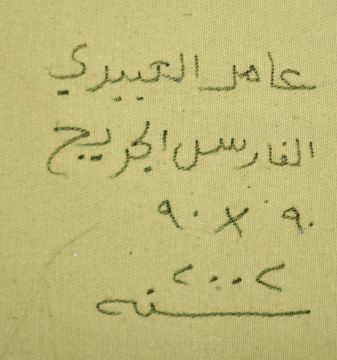 عامر العبيدي
الفارس الجريح
٩٠ × ٩٠
٢٠٠٢
سنه